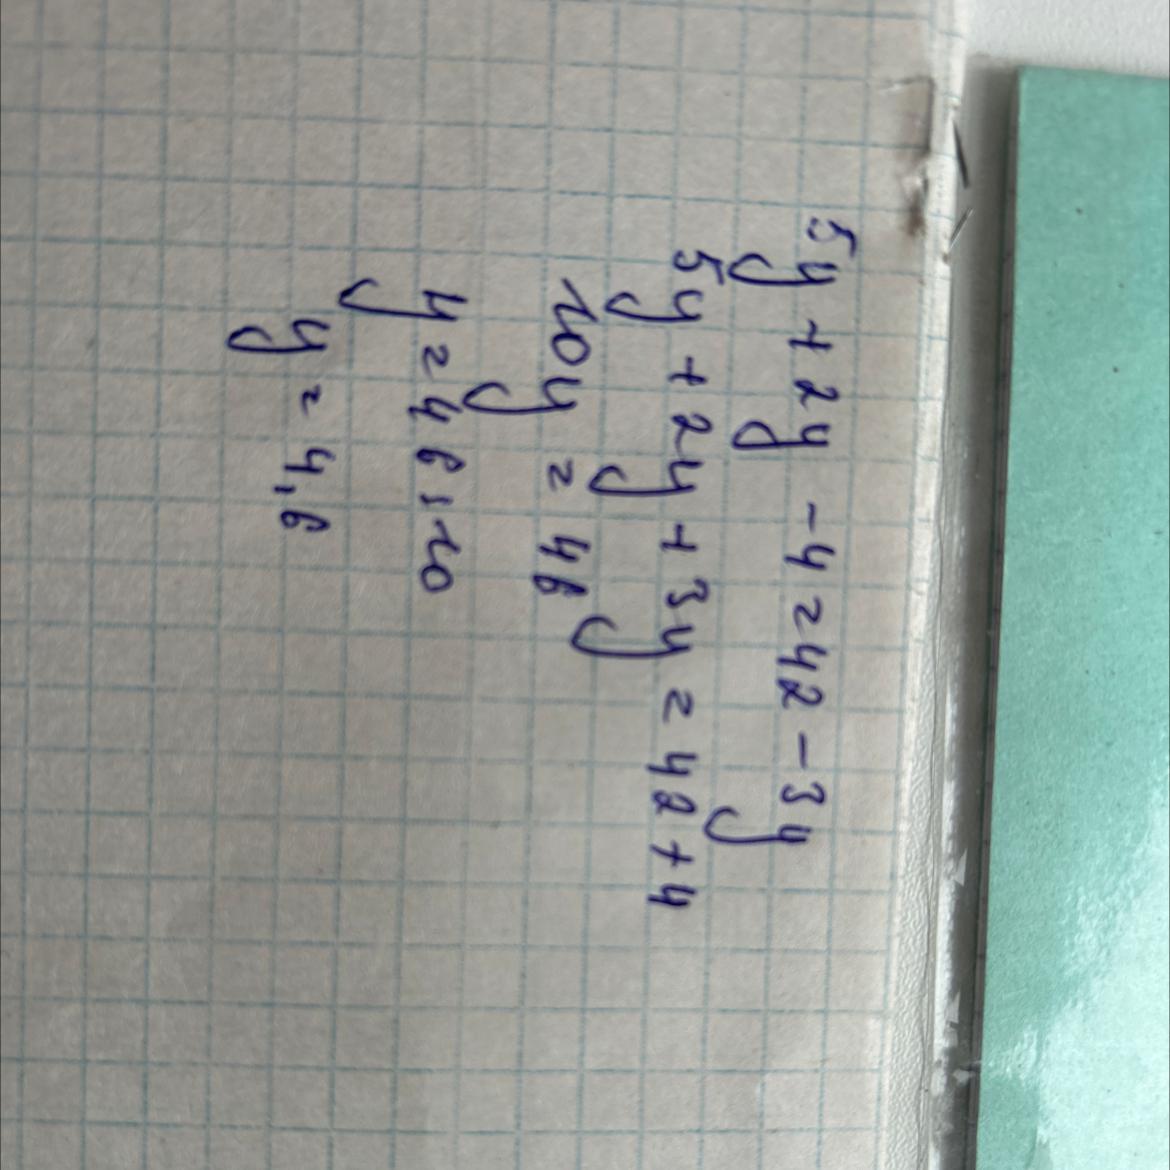 5y + 2y - 4 = 42 - 3y
5y + 2y + 3y = 42 + 4
10y = 46
y = 46 : 10
y = 4,6